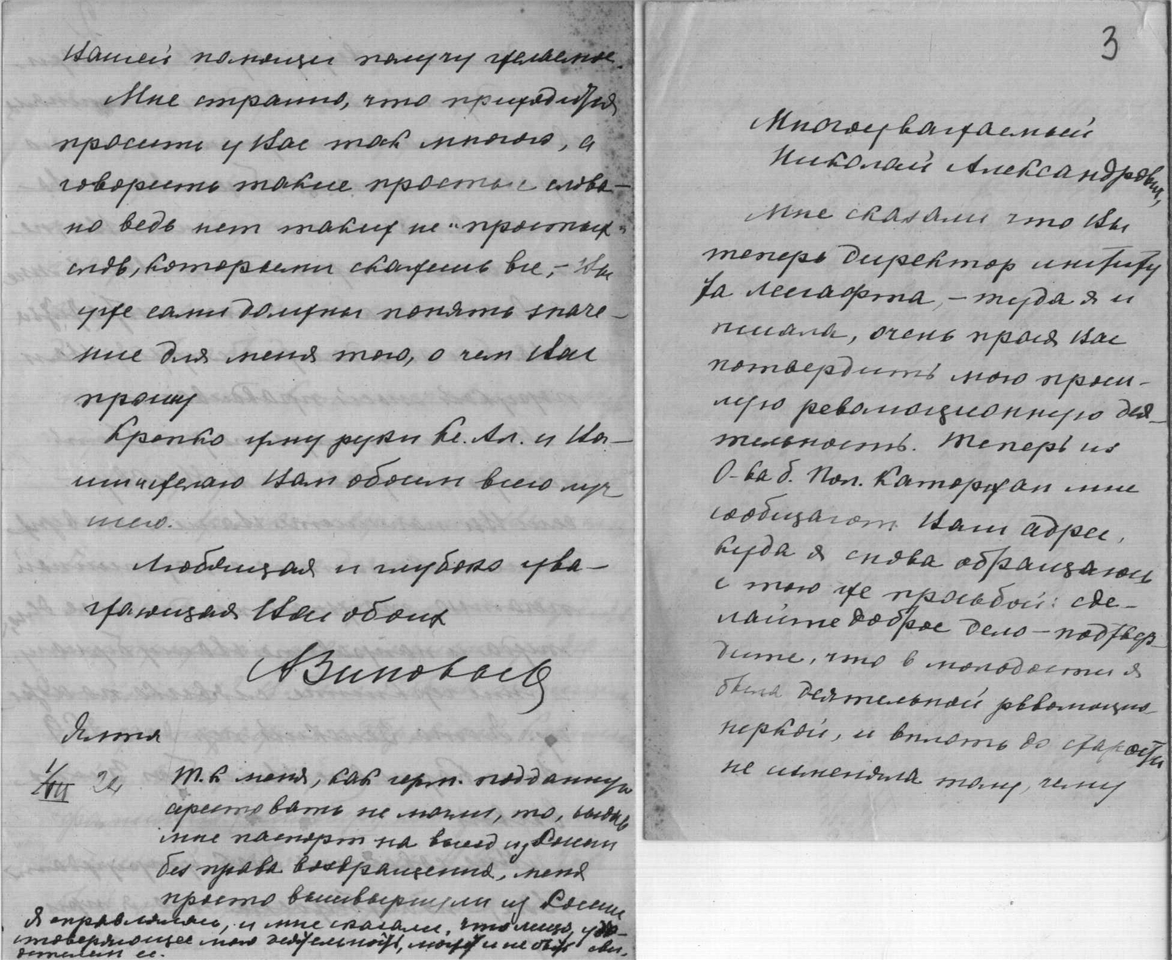 Вашей помощи получу желаемое.
Мне странно, что приходится
просить у Вас так много, а
говорить такие простые слова –
но ведь нет таких не "простых"
слов, которыми скажешь все, – Вы
уже сами должны понять значе–
ние для меня того, о чем Вас
прошу
Крепко жму руки Кс. Ал. и Ва–
ши и желаю Вам обоим всего луч
шего.
Любящая и глубоко ува–
жающая Вас обоих
Ялта
1/VII 24
Т.к меня, как герм. подданную
арестовать не могли, то, выдав
мне паспорт на выезд из России
без права возвращения, меня
просто вышвырнули из России
Я справлялась, и мне сказали, что лицо, удо–
стоверяющее мою деятельность, может и не быть сви.
детелем ее.
3
Многоуважаемый
Николай Александрович,
Мне сказали что Вы
теперь директор институ
та Лесгафта, – туда я и
писала, очень прося Вас
потвердить мою прош–
лую революционную дея–
тельность. Теперь из
О-ва б. Пол. Каторжан мне
сообщают Ваш адрес,
куда я снова обращаюсь
с тою же просьбой: сде–
лайте доброе дело – подтвер–
дите, что в молодости я
была деятельной революцио–
неркой, и вплоть до старости
не изменяла тому, чему